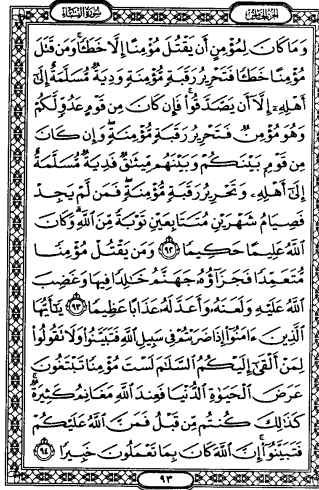 الجزء الخامس سورة النساء
وَمَا كَانَ لِمُؤْمِنٍ أَن يَقْتُلَ مُؤْمِنًا إِلَّا خَطَـًٔا ۚ وَمَن قَتَلَ
مُؤْمِنًا خَطَـًٔا فَتَحْرِيرُ رَقَبَةٍ مُّؤْمِنَةٍ وَدِيَةٌ مُّسَلَّمَةٌ إِلَىٰٓ
أَهْلِهِۦٓ إِلَّآ أَن يَصَّدَّقُوا۟ ۚ فَإِن كَانَ مِن قَوْمٍ عَدُوٍّ لَّكُمْ
وَهُوَ مُؤْمِنٌ فَتَحْرِيرُ رَقَبَةٍ مُّؤْمِنَةٍ ۖ وَإِن كَانَ
مِن قَوْمٍۭ بَيْنَكُمْ وَبَيْنَهُم مِّيثَـٰقٌ فَدِيَةٌ مُّسَلَّمَةٌ
إِلَىٰٓ أَهْلِهِۦ وَتَحْرِيرُ رَقَبَةٍ مُّؤْمِنَةٍ ۖ فَمَن لَّمْ يَجِدْ
فَصِيَامُ شَهْرَيْنِ مُتَتَابِعَيْنِ تَوْبَةً مِّنَ ٱللَّهِ ۗ وَكَانَ
ٱللَّهُ عَلِيمًا حَكِيمًا ﴿٩٢﴾ وَمَن يَقْتُلْ مُؤْمِنًا
مُّتَعَمِّدًا فَجَزَآؤُهُۥ جَهَنَّمُ خَـٰلِدًا فِيهَا وَغَضِبَ
ٱللَّهُ عَلَيْهِ وَلَعَنَهُۥ وَأَعَدَّ لَهُۥ عَذَابًا عَظِيمًا ﴿٩٣﴾ يَـٰٓأَيُّهَا
ٱلَّذِينَ ءَامَنُوٓا۟ إِذَا ضَرَبْتُمْ فِى سَبِيلِ ٱللَّهِ فَتَبَيَّنُوا۟ وَلَا تَقُولُوا۟
لِمَنْ أَلْقَىٰٓ إِلَيْكُمُ ٱلسَّلَـٰمَ لَسْتَ مُؤْمِنًا تَبْتَغُونَ
عَرَضَ ٱلْحَيَوٰةِ ٱلدُّنْيَا فَعِندَ ٱللَّهِ مَغَانِمُ كَثِيرَةٌ ۚ
كَذَٰلِكَ كُنتُم مِّن قَبْلُ فَمَنَّ ٱللَّهُ عَلَيْكُمْ
فَتَبَيَّنُوٓا۟ ۚ إِنَّ ٱللَّهَ كَانَ بِمَا تَعْمَلُونَ خَبِيرًا ﴿٩٤﴾
٩٣